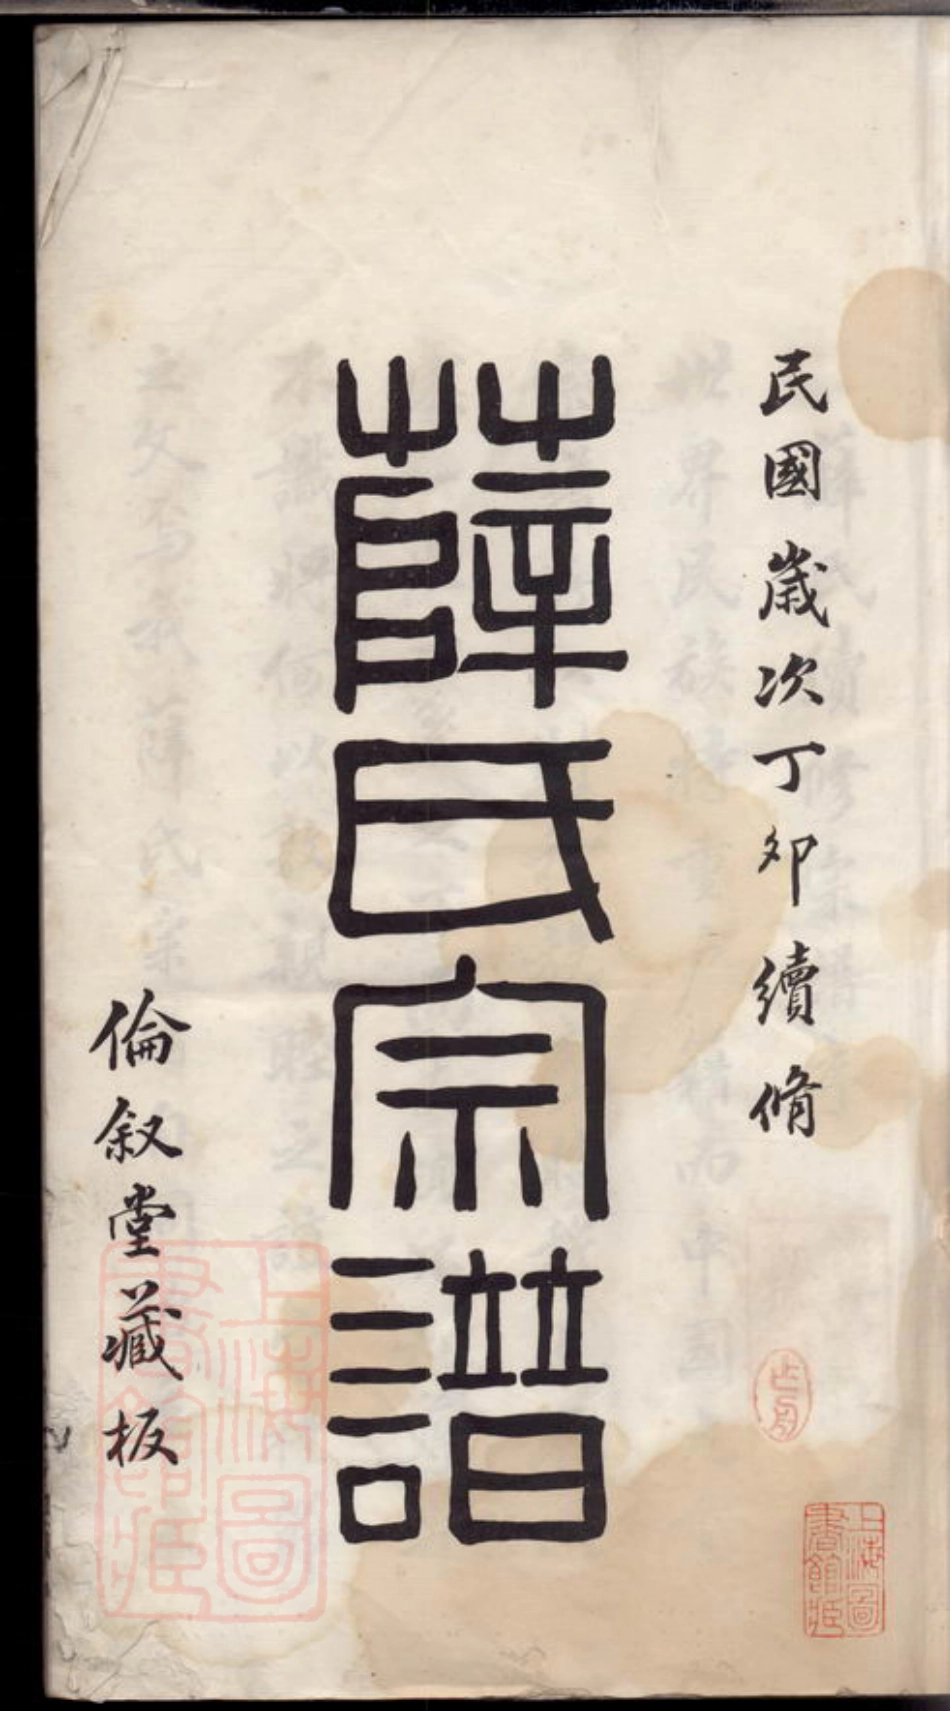 民國歲次丁卯續脩
薛氏宗譜
倫叙堂藏板
上海圖書館藏
上海圖書館藏